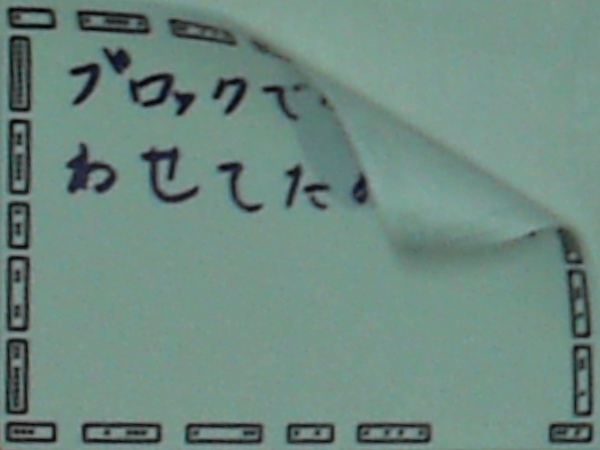 ブロックで
わせてた